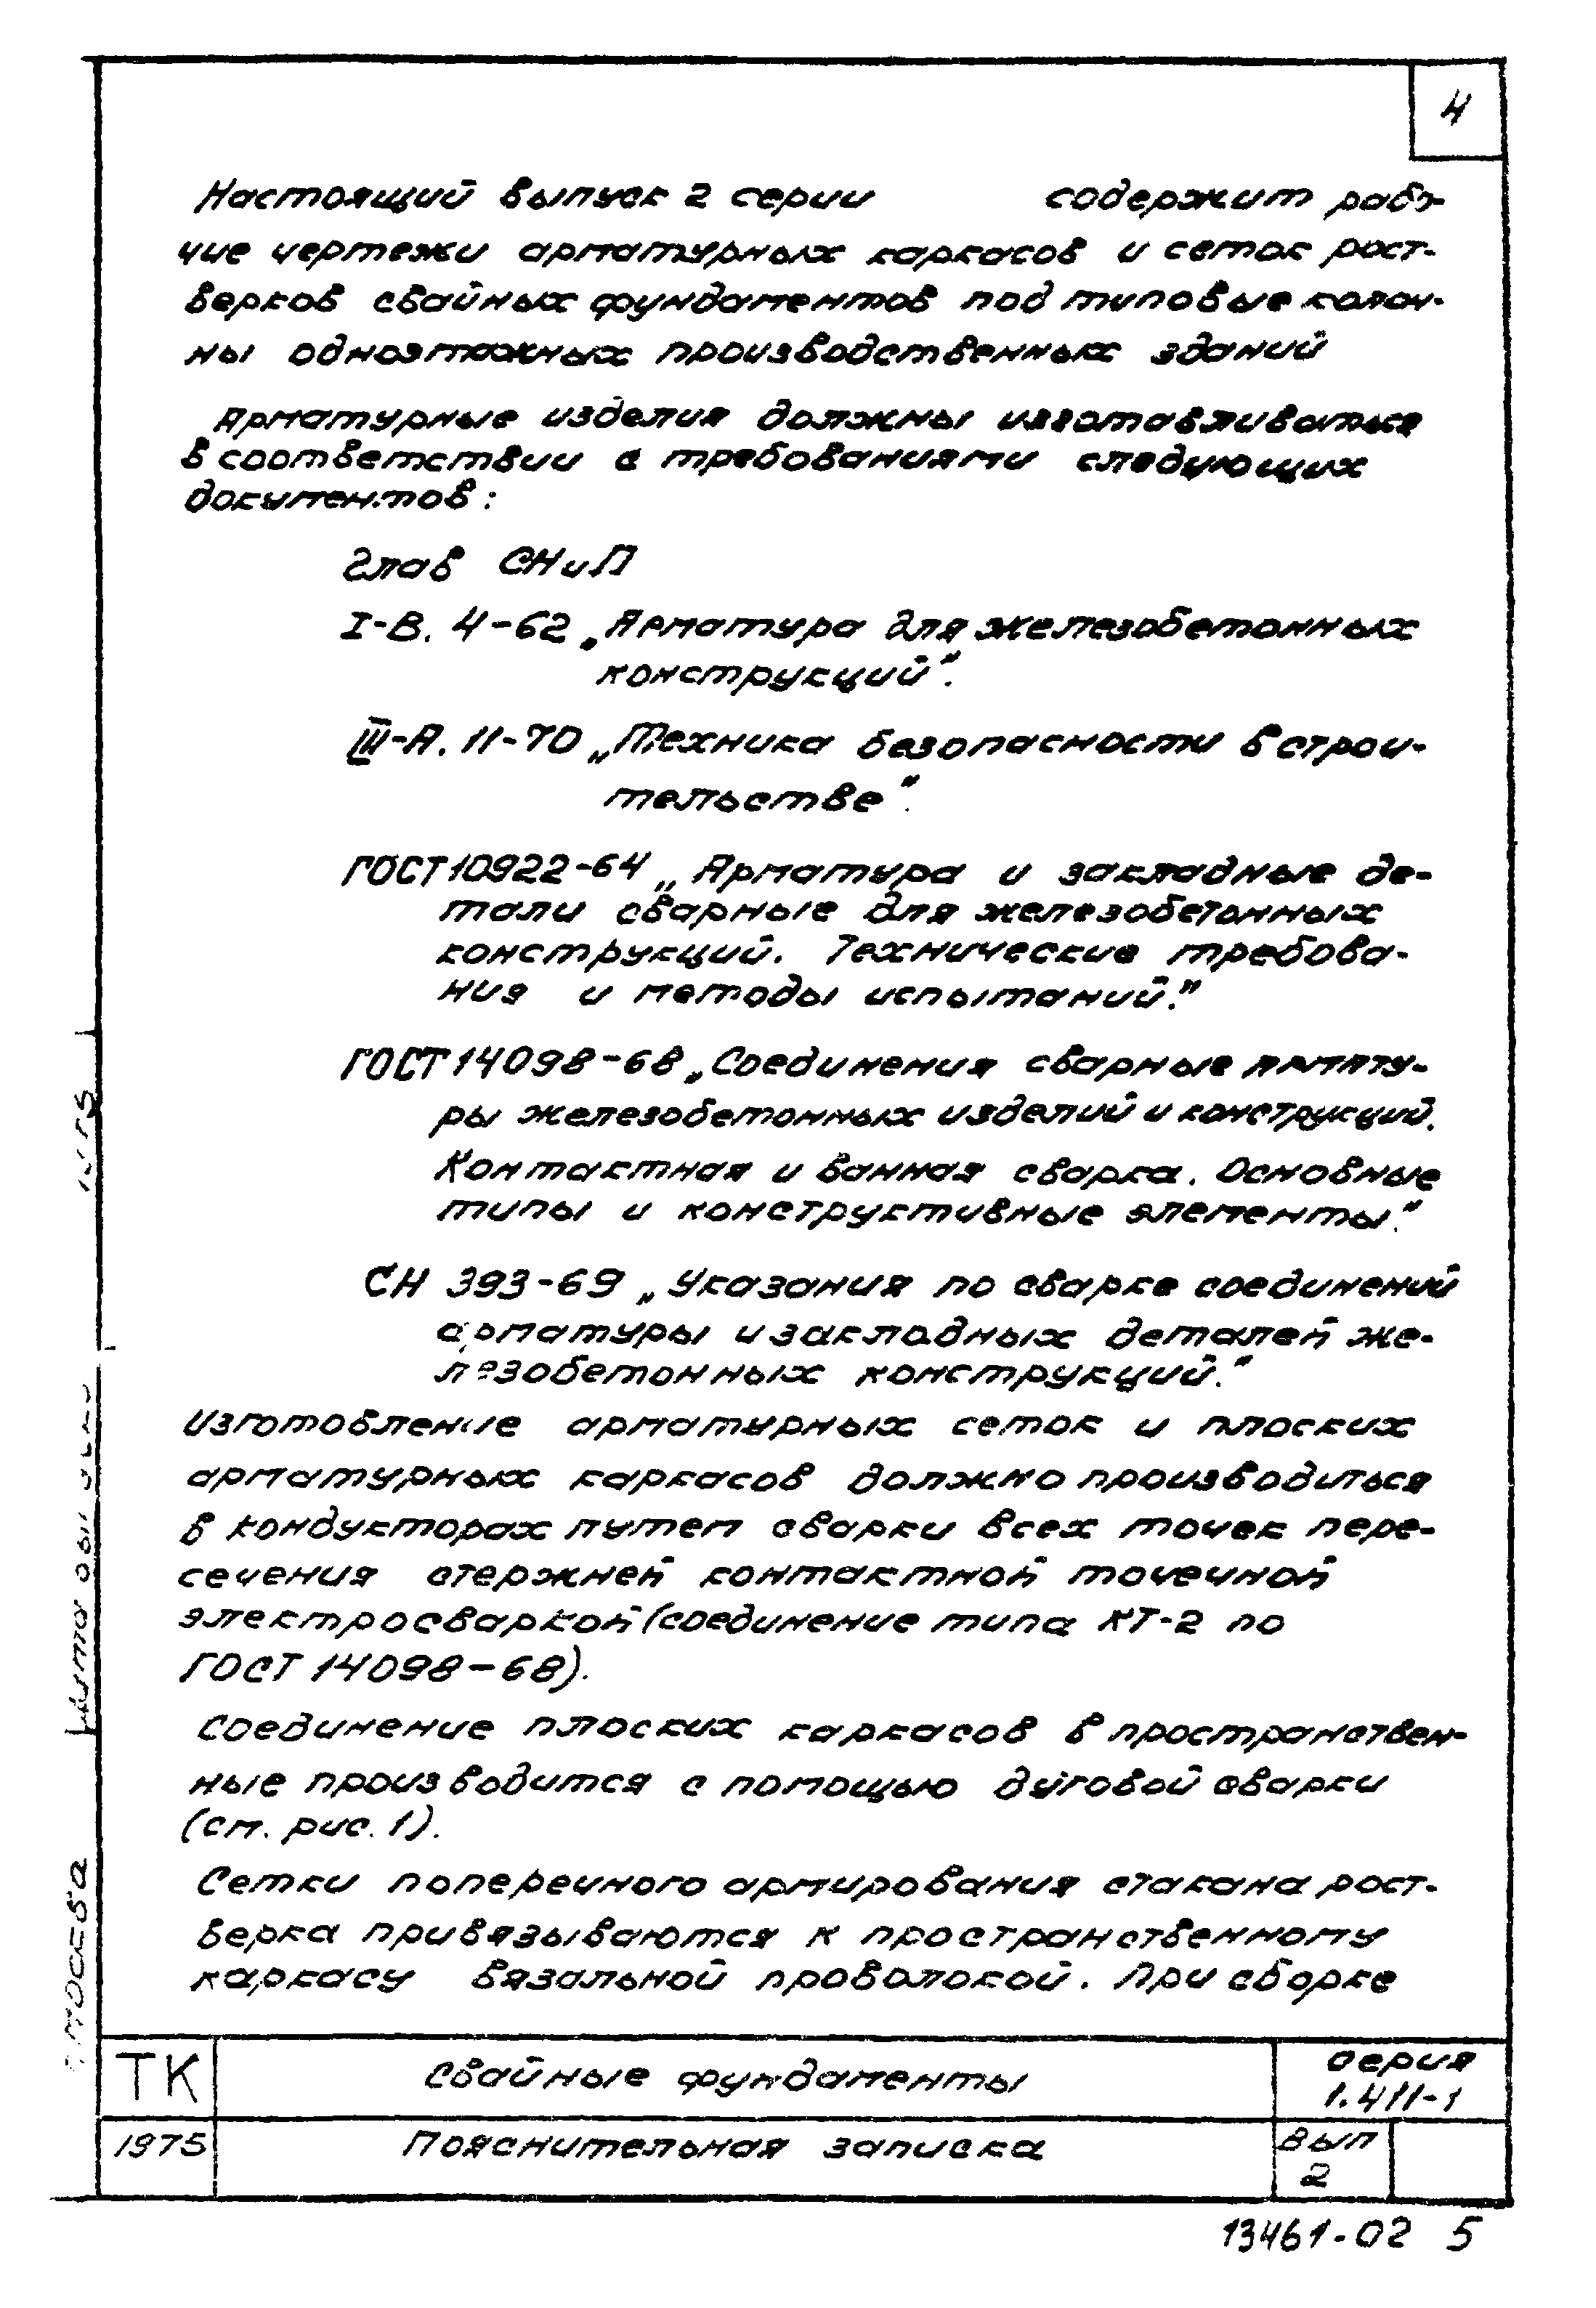 4
Настоящий выпуск 2 серии содержит рабо-
чие чертежи арматурных каркасов и сеток рост-
верков свайных фундаментов под типовые колон-
ны одноэтажных производственных зданий
Арматурные изделия должны изготавливаться
в соответствии с требованиями следующих
документов:
глав СНиП
I-В. 4-62 „Арматура для железобетонных
конструкций".
III-А. 11-70 „Техника безопасности в строи-
тельстве".
ГОСТ 10922-64 „Арматура и закладные де-
тали сварные для железобетонных
конструкций. Технические требова-
ния и методы испытаний."
ГОСТ 14098-68 „Соединения сварные армату-
ры железобетонных изделий и конструкций.
Контактная и ванная сварка. Основные
типы и конструктивные элементы."
СН 393-69 „Указания по сварке соединений
арматуры и закладных деталей же-
лезобетонных конструкций."
Изготовление арматурных сеток и плоских
арматурных каркасов должно производиться
в кондукторах путем сварки всех точек пере-
сечения стержней контактной точечной
электросваркой (соединение типа КТ-2 по
ГОСТ 14098-68).
Соединение плоских каркасов в пространствен-
ные производится с помощью дуговой сварки
(см. рис. 1).
Сетки поперечного армирования стакана рост-
верка привязываются к пространственному
каркасу вязальной проволокой. При сборке
ТК
Свайные фундаменты
Серия
1.411-1
1975
Пояснительная записка
Вып
2
13461-02 5